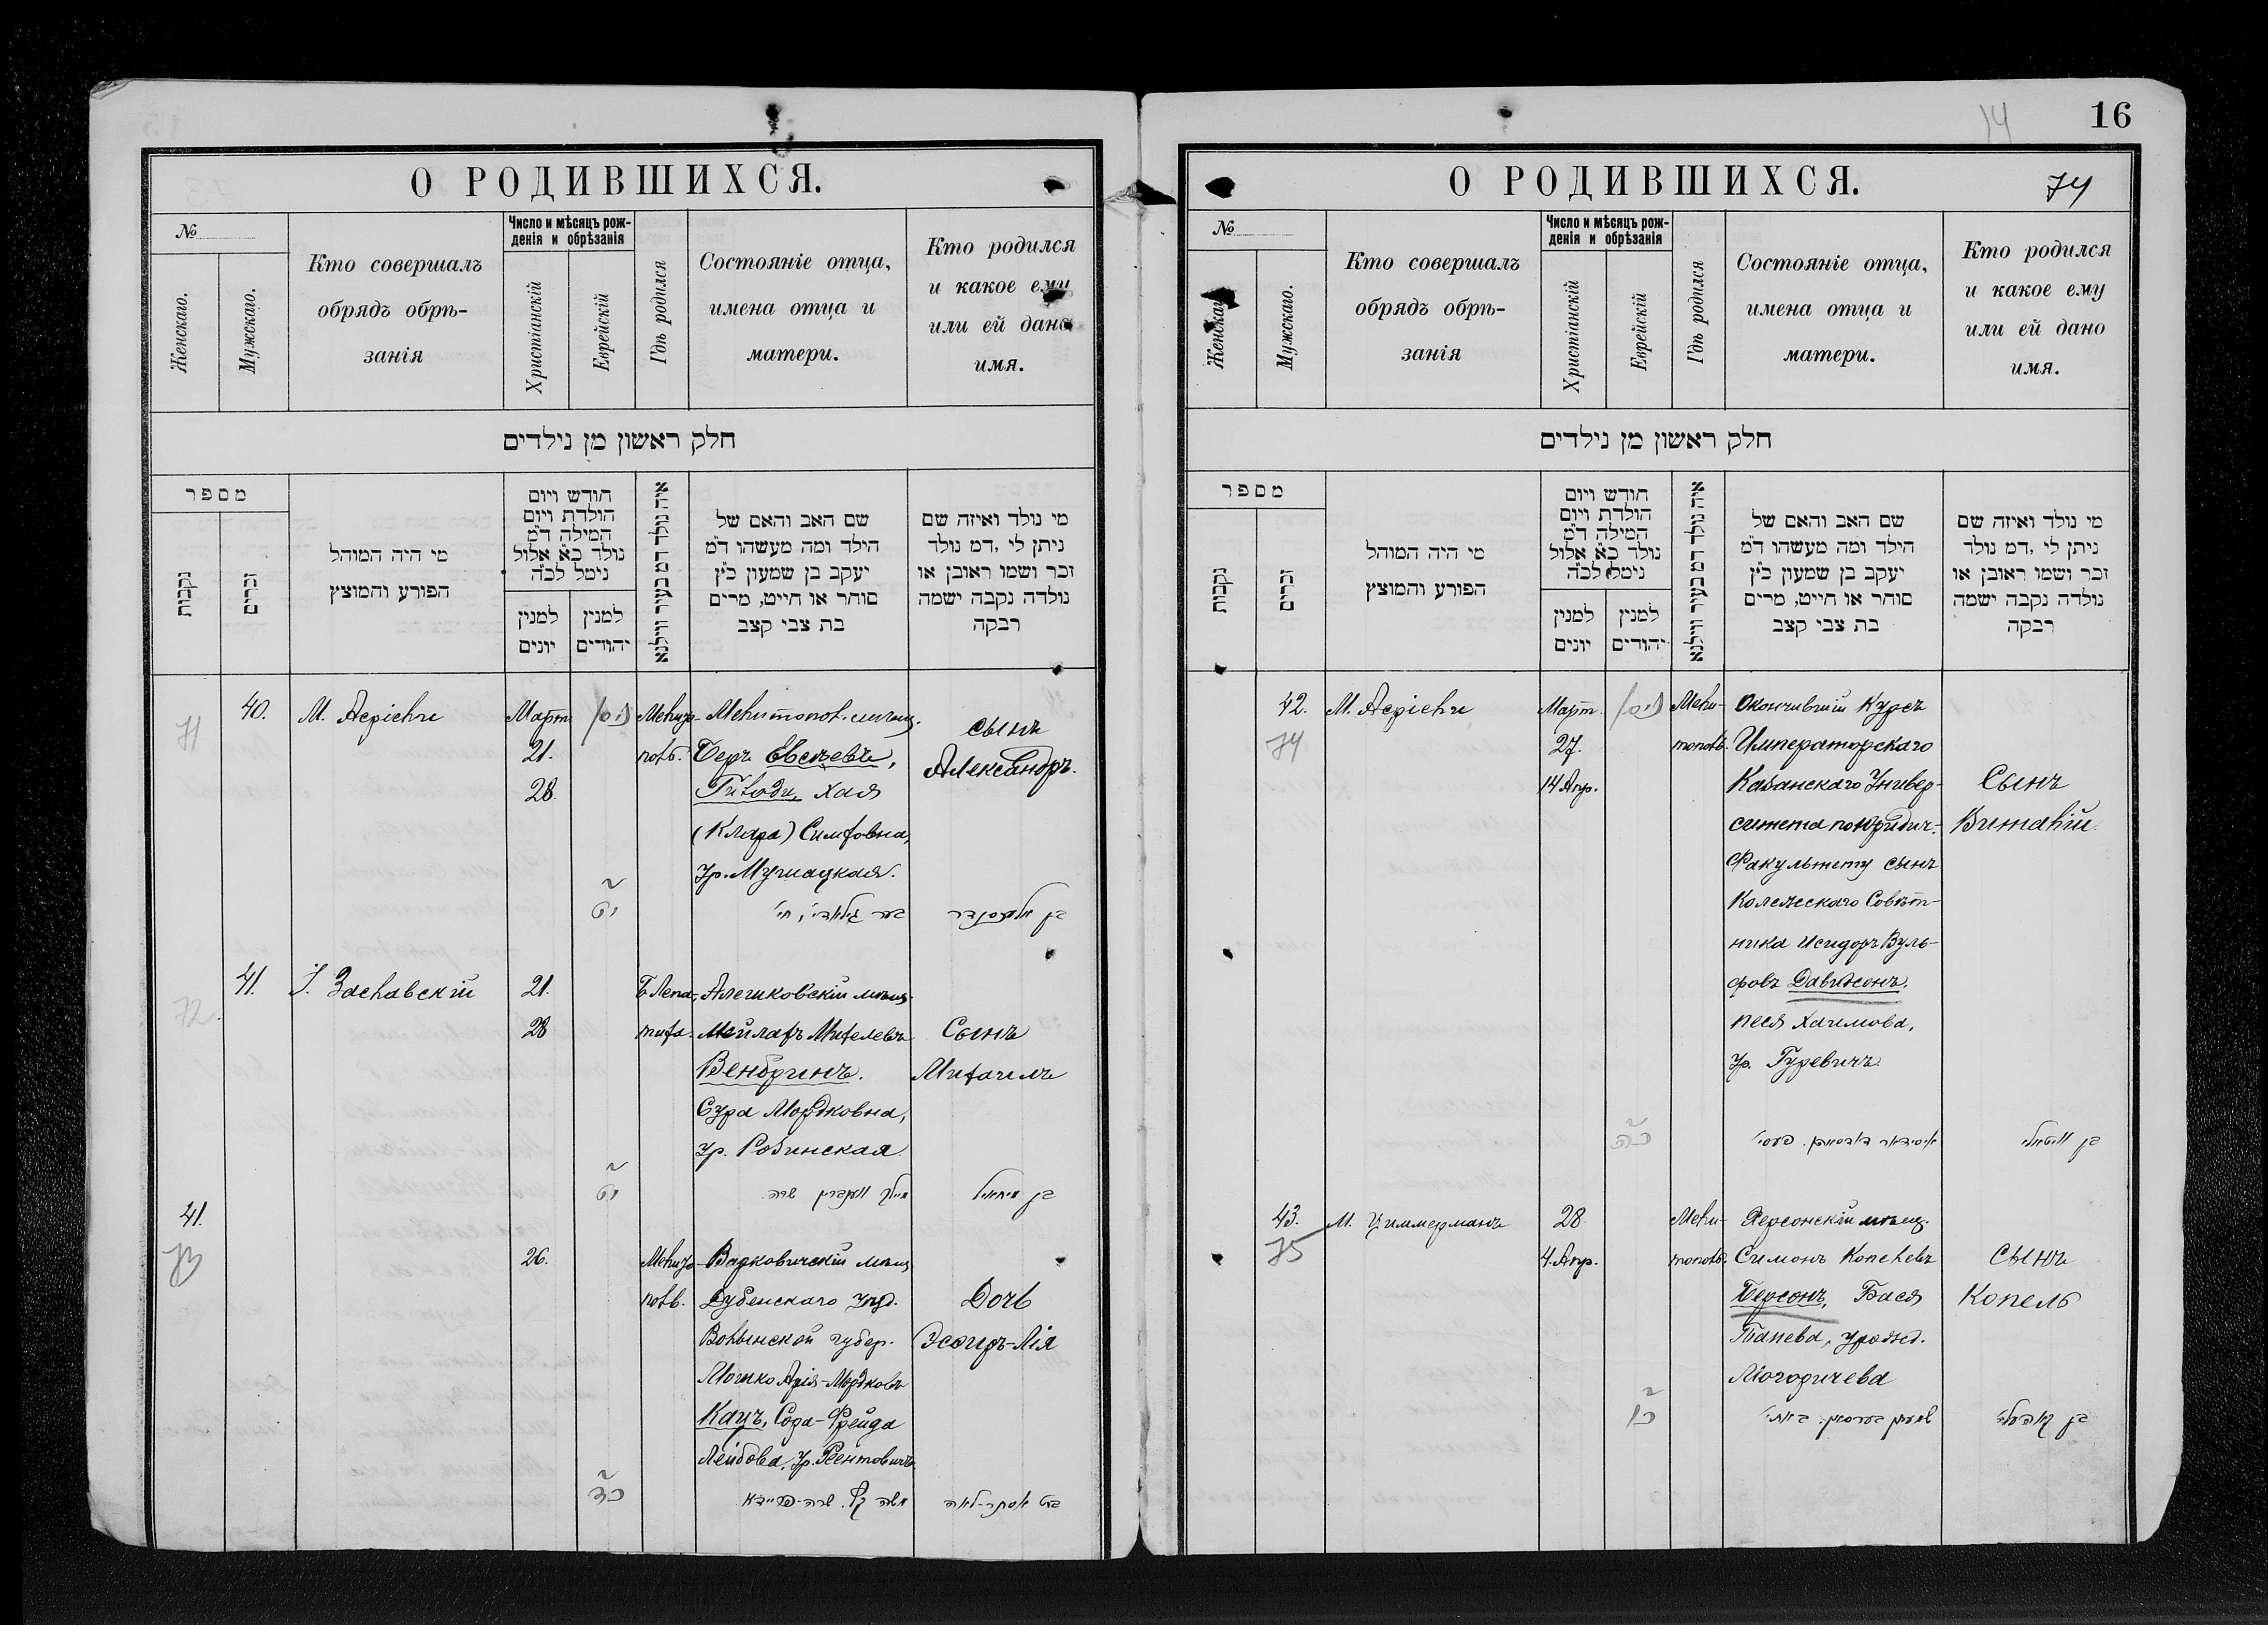 16
14
О РОДИВШИХСЯ.
№
Женскаго.
Мужскаго.
Кто совершалъ
обрядъ обрѣ-
занія
Число и мѣсяцъ рож-
денія и обрѣзанія
Христіанскій
Еврейскій
Гдѣ родился
Состояніе отца,
имена отца и
матери.
Кто родился
и какое ему
или ей дано
имя.
חלק ראשון מן נילדים
מספר
נקבות
זכרים
מי היה המוהל
הפורע והמוצץ
חודש ויום
הולדת ויום
המילה ד״מ
נולד כ״א אלול
נימל לכ״ה
למנין
יונים
למנין
יהודים
איה נולד דמ בעיר ווילנא
שם האב והאם של
הילד ומה מעשהו ד״מ
יעקב בן שמעון כ״ץ
סוחר או חייט, מרים
בת צבי קצב
מי נולד ואיזה שם
ניתן לי ,דמ נולד
זכר ושמו ראובן או
נולדה נקבה ישמה
רבקה
71
40.
Март.
21.
28.
ניסן
Мелито-
поль.
Мелитопол. мѣщ.
Беръ Евсѣевъ,
Хая
(Клара)
ур.
сынъ
Александръ.
יט
בן אלכסנדר
72.
41.
І. Заславскій
21.
28
Б. Лепа-
тиха.
Алешковскій мѣщ.
Мейлахъ Михелевъ
Вендринъ.
Сура Мордковна,
ур. Робинская
Сынъ
Михаилъ
יט
שרה
בן מיחאל
41.
73
26.
Мелито-
поль.
Варковичскій мѣщ.
Дубенскаго уѣзд.
Волынской губер.
Мошко Арія-Мордковъ
Кацъ, Сора-Фрейда
Лейбова, ур.
Дочь
Эсѳиръ-Лія
כד
משה כץ. שרה-פריידא
בת אסתר-לאה
О РОДИВШИХСЯ.
74
№
Женскаго.
Мужскаго.
Кто совершалъ
обрядъ обрѣ-
занія
Число и мѣсяцъ рож-
денія и обрѣзанія
Христіанскій
Еврейскій
Гдѣ родился
Состояніе отца,
имена отца и
матери.
Кто родился
и какое ему
или ей дано
имя.
חלק ראשון מן נילדים
מספר
נקבות
זכרים
מי היה המוהל
הפורע והמוצץ
חודש ויום
הולדת ויום
המילה ד״מ
נולד כ״א אלול
נימל לכ״ה
למנין
יונים
למנין
יהודים
איה נולד דמ בעיר ווילנא
שם האב והאם של
הילד ומה מעשהו ד״מ
יעקב בן שמעון כ״ץ
סוחר או חייט, מרים
בת צבי קצב
מי נולד ואיזה שם
ניתן לי ,דמ נולד
זכר ושמו ראובן או
נולדה נקבה ישמה
רבקה
42.
74
Март.
27.
14 Апр.
ניסן
Мели-
тополь.
Окончившій Курсъ
Императорскаго
Казанскаго Универ-
ситета по Юридич.
Факультету сынъ
Колежскаго Совѣт-
ника Исидоръ Вуль-
фовъ Давидсонъ.
Песя Хаимова,
ур. Гуревичъ.
Сынъ
Виталій.
כה
בן וויטאלי
43.
75
М. Циммерманъ
28.
4. Апр.
Мели-
тополь.
Херсонскій мѣщ.
Симонъ Копелевъ
Берсонъ, Бася
урожд.
Сынъ
Копель
כו
בן קאפעל